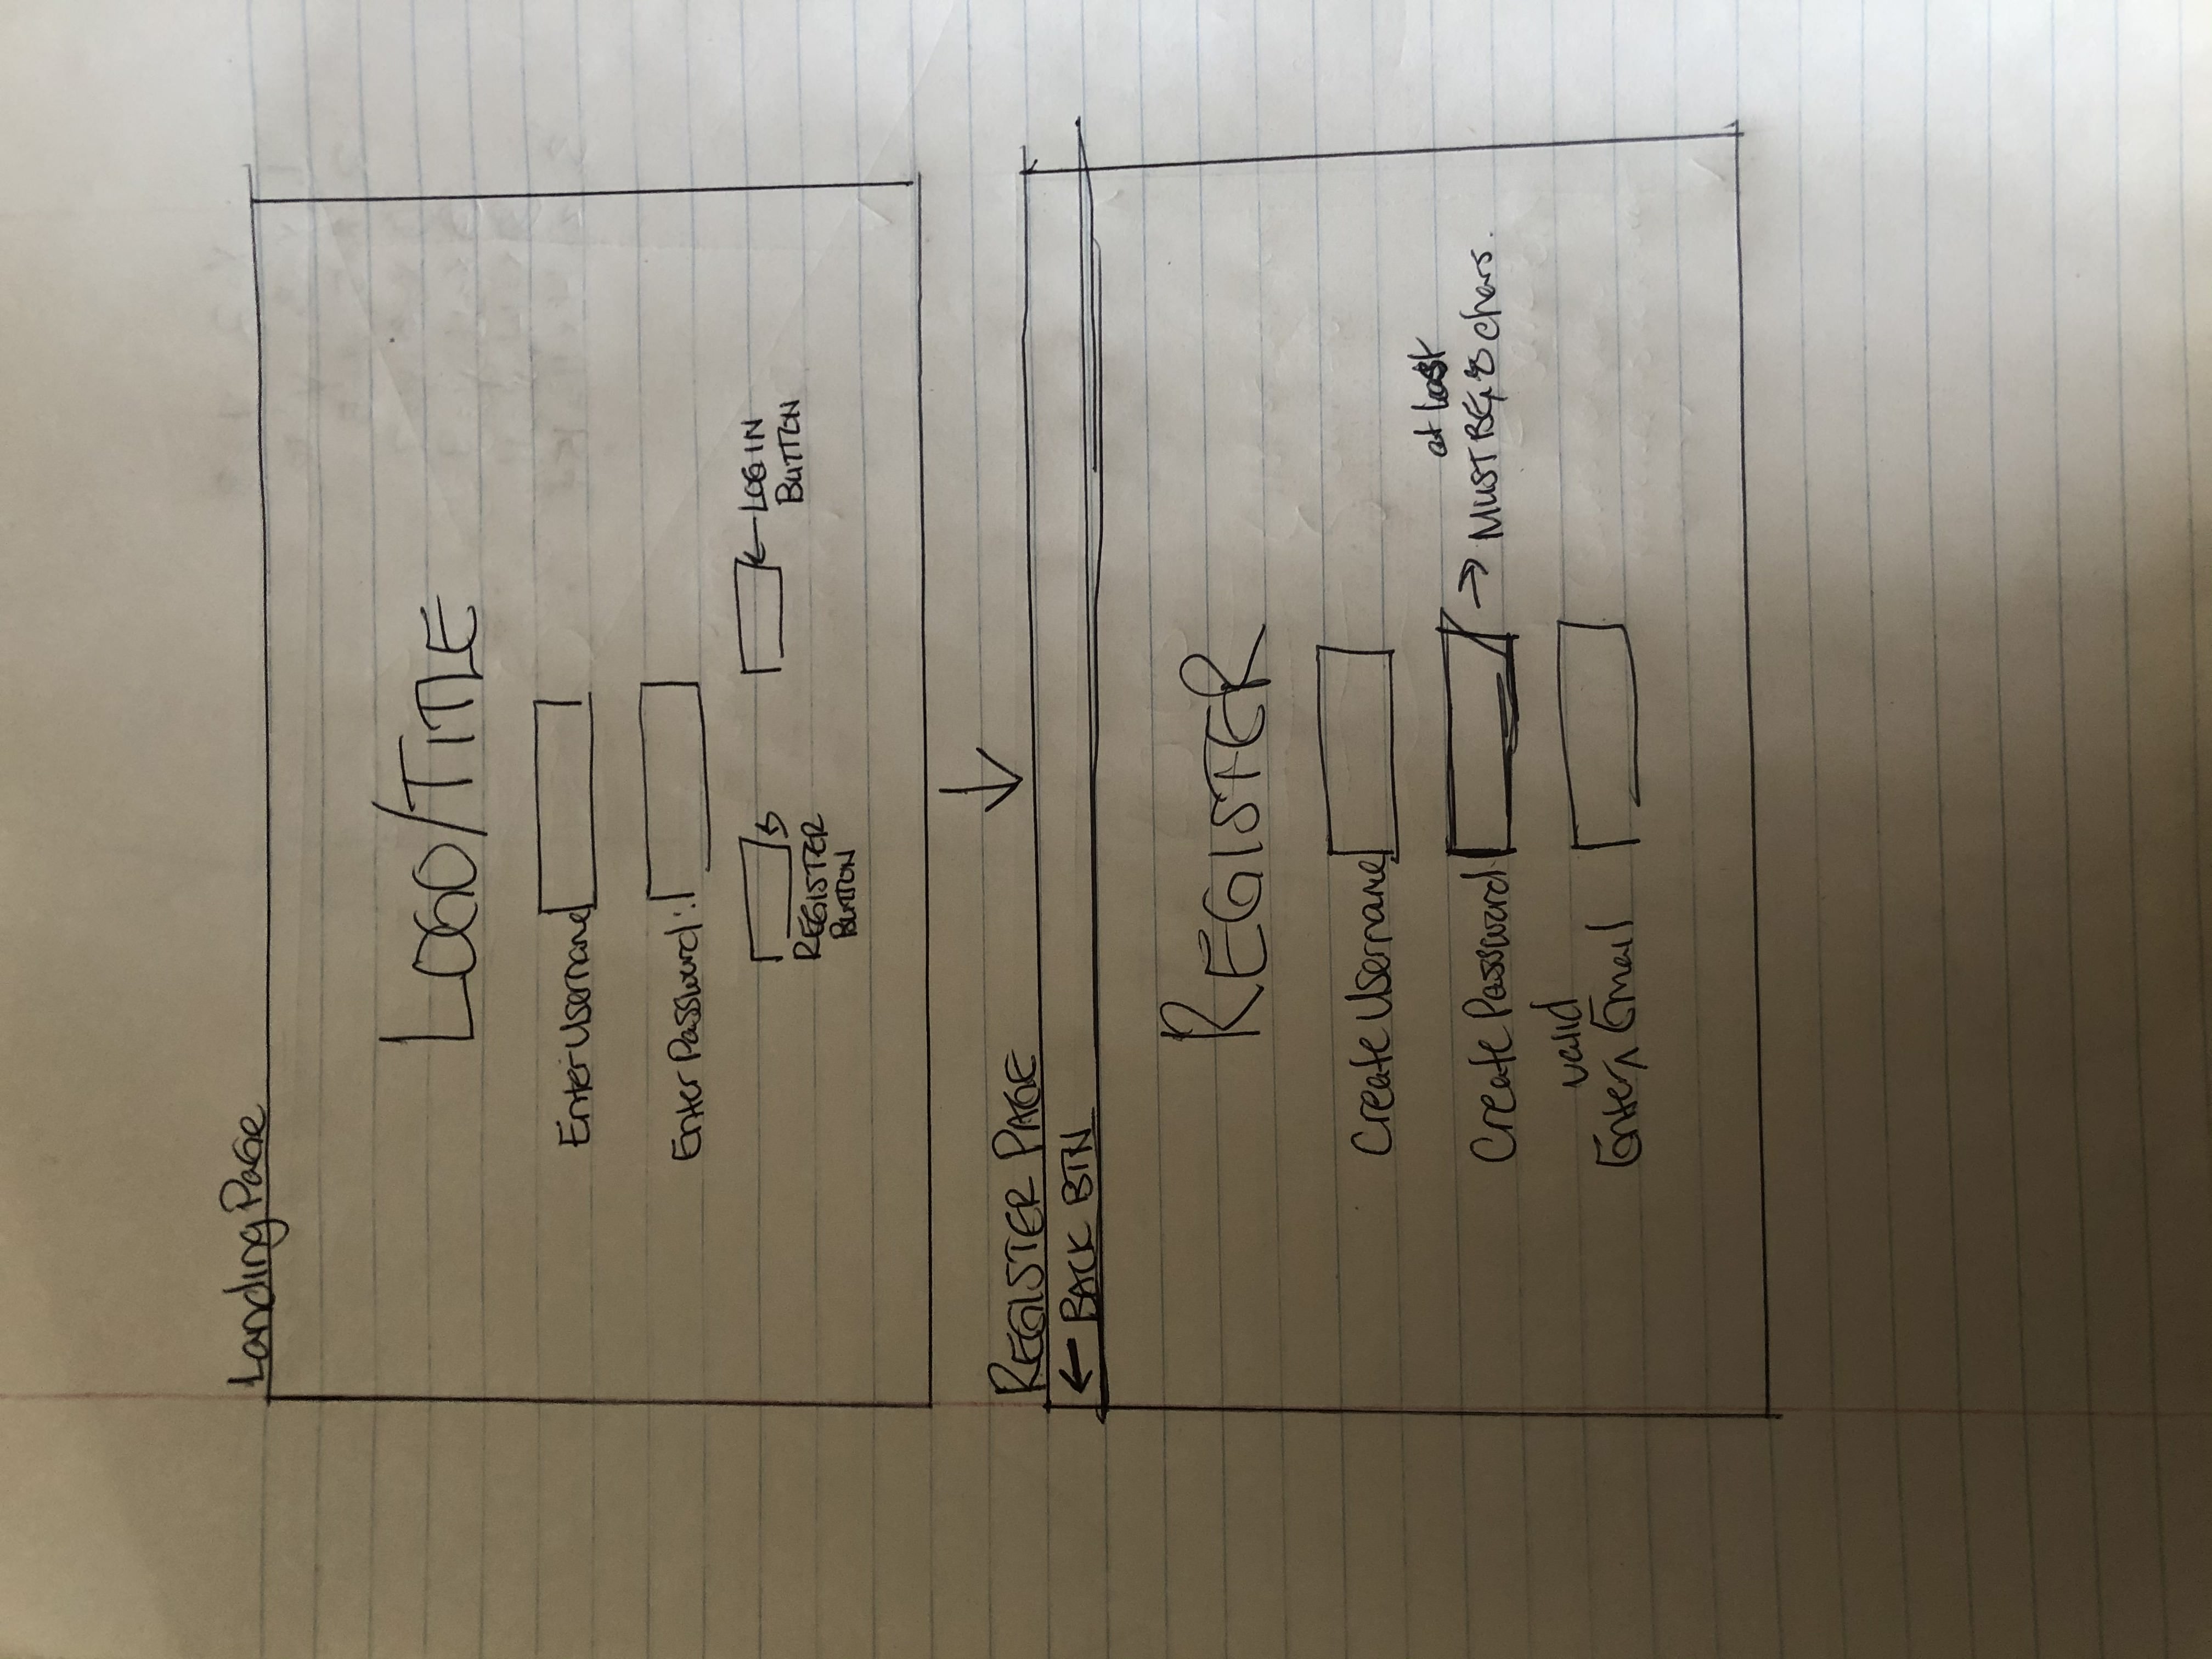 Landing Page
LOGO/TITLE
Enter Username
Enter Password:
LOG IN
BUTTON
REGISTER
BUTTON
REGISTER PAGE
← BACK BTN
REGISTER
Create Username
Create Password
at least
→ MUST BE 8 chars.
valid
Enter Email